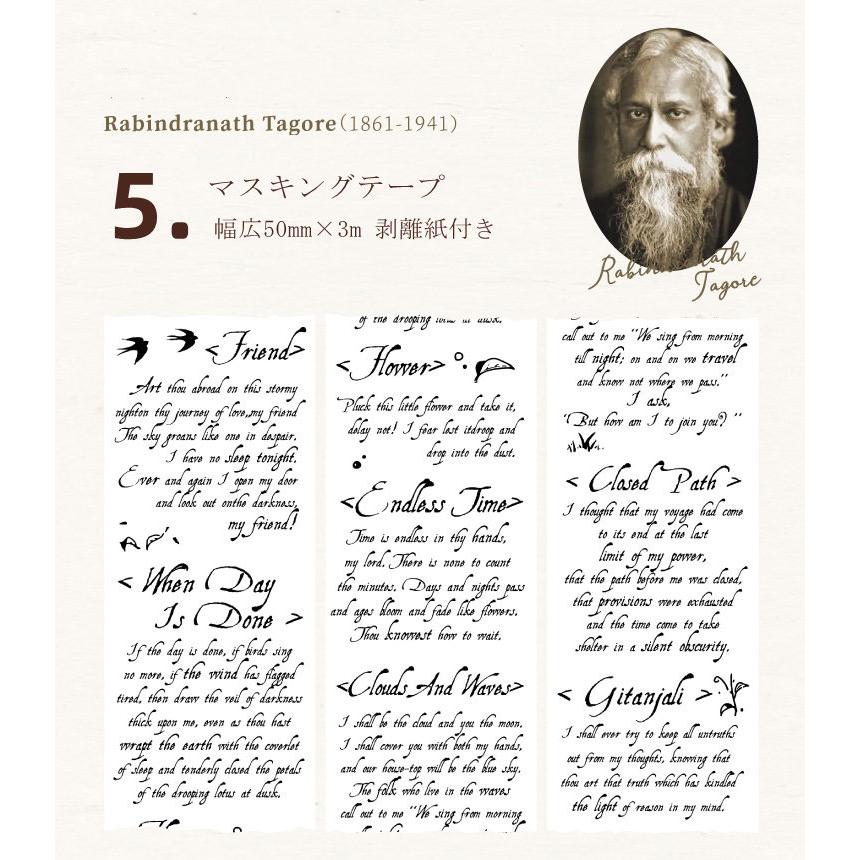 Rabindranath Tagore(1861-1941)
5.
マスキングテープ
幅広50mm×3m 剥離紙付き
Rabindranath
Tagore
<Friend>
Art thou abroad on this stormy
nighton thy journey of love,my friend
The sky groans like one in despair.
I have no sleep tonight.
Ever and again I open my door
and look out onthe darkness,
my friend!
< When Day
Is Done >
If the day is done, if birds sing
no more, if the wind has flagged
tired, then draw the veil of darkness
thick upon me, even as thou hast
wrapt the earth with the coverlet
of sleep and tenderly closed the petals
of the drooping lotus at dusk.
of the drooping lotus at dusk.
< Flovver>
Pluck this little flower and take it,
delay not! I fear lest itdroop and
drop into the dust.
<Endless Time>
Time is endless in thy hands,
my lord. There is none to count
the minutes. Days and nights pass
and ages bloom and fade like flowers.
Thou knowest how to wait.
<Clouds And Waves>
I shall be the cloud and you the moon.
I shall cover you with both my hands,
and our house-top will be the blue sky.
The folk who live in the waves
call out to me "We sing from morning
call out to me "We sing from morning
till night; on and on we travel
and know not where we pass."
I ask,
"But how am I to join you? "
< Closed Path >
I thought that my voyage had come
to its end at the last
limit of my power,
that the path before me was closed,
that provisions were exhausted
and the time come to take
shelter in a silent obscurity.
< Gitanjali >
I shall ever try to keep all untruths
out from my thoughts, knowing that
thou art that truth which has kindled
the light of reason in my mind.